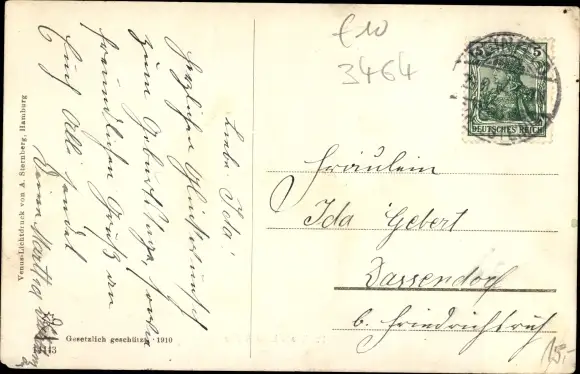 £10
3464
5
DEUTSCHES REICH
Liebe Ida!
Herzlichen Glückwunsch
zum Geburtstage, sowie
freundlichen Gruß an
Euch Alle sendet
Deine Martha
Fräulein
Ida Gebert
Dassendorf
b. Friedrichsruh
15.-
Venus-Lichtdruck von A. Sternberg, Hamburg
Gesetzlich geschützt · 1910